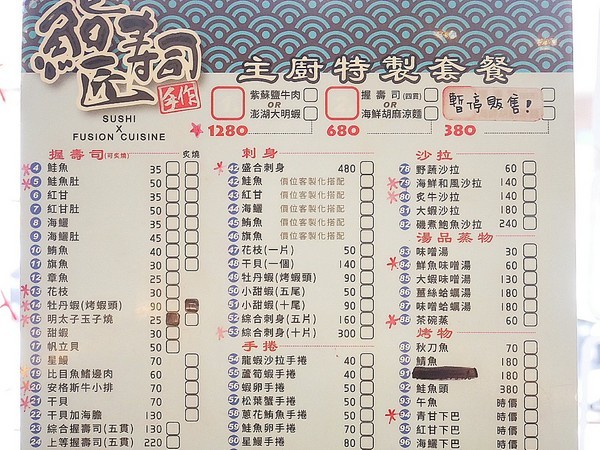 鮨匠壽司
手作
SUSHI
X
FUSION CUISINE
主廚特製套餐
紫蘇鹽牛肉
OR
澎湖大明蝦
1280
握壽司(四貫)
OR
海鮮胡麻涼麵
680
暫停販售!
380
握壽司(可炙燒) 炙燒
4 鮭魚 35
5 鮭魚肚 45
6 紅甘 35
7 紅甘肚 50
8 海鱺 35
9 海鱺肚 45
10 鮪魚 40
11 旗魚 30
12 章魚 25
13 花枝 30
14 牡丹蝦(烤蝦頭) 90
15 明太子玉子燒 25
16 甜蝦 30
17 帆立貝 50
18 星鰻 70
19 比目魚鰭邊肉 60
20 安格斯牛小排 70
21 干貝 70
22 干貝加海膽 130
23 綜合握壽司(五貫) 130
24 上等握壽司(五貫) 220
刺身
42 盛合刺身 480
42 鮭魚 價位客製化搭配
43 紅甘 價位客製化搭配
44 海鱺 價位客製化搭配
45 鮪魚 價位客製化搭配
46 旗魚 價位客製化搭配
47 花枝(一片) 50
48 干貝(一個) 140
49 牡丹蝦(烤蝦頭) 90
50 小甜蝦(五尾) 50
51 小甜蝦(十尾) 90
52 綜合刺身(五片) 160
53 綜合刺身(十片) 300
手捲
54 龍蝦沙拉手捲 40
55 蘆筍蝦手捲 40
56 蝦卵手捲 50
57 松葉蟹手捲 50
58 蔥花鮪魚手捲 50
59 鮭魚卵手捲 80
60 星鰻手捲 80
沙拉
78 野蔬沙拉 60
79 海鮮和風沙拉 180
80 炙牛沙拉 140
81 大蝦沙拉 180
82 磯煮鮑魚沙拉 240
湯品蒸物
83 味噌湯 30
84 鮮魚味噌湯 60
85 大蝦味噌湯 60
86 薑絲蛤蠣湯 60
87 味噌蛤蠣湯 60
88 茶碗蒸 60
烤物
89 秋刀魚 50
90 鯖魚 180
91 180
92 鮭魚頭 380
93 午魚 時價
94 青甘下巴 時價
95 紅甘下巴 時價
96 海鱺下巴 時價